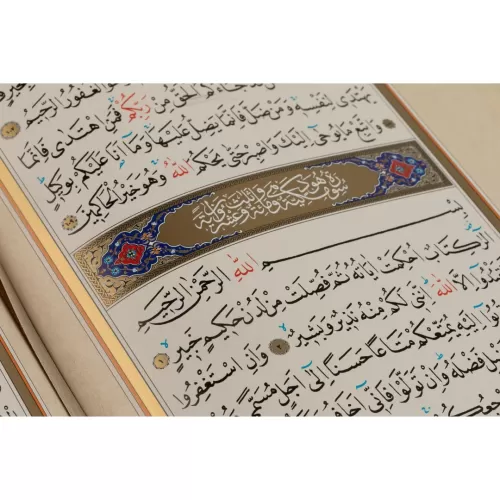 جَاءَكُمُ الْحَقُّ مِنْ رَبِّكُمْ فَمَنِ اهْتَدَىٰ فَإِنَّمَا
يَهْتَدِي لِنَفْسِهِ وَمَنْ ضَلَّ فَإِنَّمَا يَضِلُّ عَلَيْهَا وَمَا أَنَا عَلَيْكُمْ بِوَكِيلٍ
وَاتَّبِعْ مَا يُوحَىٰ إِلَيْكَ وَاصْبِرْ حَتَّىٰ يَحْكُمَ اللَّهُ وَهُوَ خَيْرُ الْحَاكِمِينَ
سورة هود مكية وهي مائة وثلث وعشرون آية
بِسْمِ اللَّهِ الرَّحْمَٰنِ الرَّحِيمِ
الر كِتَابٌ أُحْكِمَتْ آيَاتُهُ ثُمَّ فُصِّلَتْ مِنْ لَدُنْ حَكِيمٍ خَبِيرٍ
تَعْبُدُوا إِلَّا اللَّهَ إِنَّنِي لَكُمْ مِنْهُ نَذِيرٌ وَبَشِيرٌ وَأَنِ اسْتَغْفِرُوا
تُوبُوا إِلَيْهِ يُمَتِّعْكُمْ مَتَاعًا حَسَنًا إِلَىٰ أَجَلٍ مُسَمًّى
فَضْلَهُ وَإِنْ تَوَلَّوْا فَإِنِّي أَخَافُ